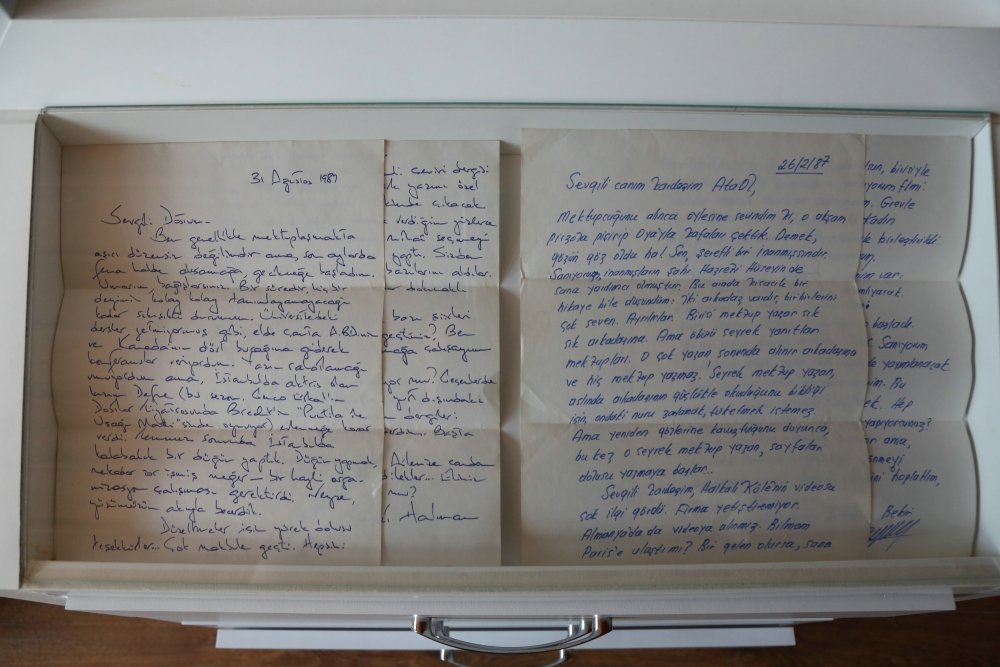 31 Ağustos 1987
Sevgili
Ben genellikle mektuplaşmakta
aşırı düzensiz değilimdir ama, son aylarda
fena halde aksamağa, gecikmeğe başladım.
Umarım, bağışlarsınız. Bir süredir, hiçbir
deyimin kolay kolay tanımlayamayacağı
kadar sıkışıktı durumum. Üniversitedeki
dersler yetmiyormuş gibi, elde çanta A.B.D.nin
ve Kanada'nın dört bucağına giderek
konferanslar veriyordum. Yazın
umuyordum ama, İstanbul'da aktris olan
kızım Defne (bu sezon, Genco Erkal'ın
Dostlar Tiyatrosunda Brecht'in "Puntila ve
Uşağı Matti"sinde oynuyor) evlenmeğe karar
verdi. Temmuz sonunda İstanbul'da
kalabalık bir düğün yaptık. Düğün yapmak,
nekadar zor işmiş meğer — bir hayli orga-
nizasyon çalışması gerektirdi. Neyse,
yüzümüzün akıyla becerdik.
Düzeltmeler için yürek dolusu
teşekkürler... Çok makbule geçti. Hepsini
çeviri dergisi
yazımı özel
çıkacak
verdiğim şiirlere
seçmeyi
yaptı. Sizden
bazılarını aldılar.
dakundaki
bazı şiirleri
Ben
çalışıyorum
Geçenlerde
dışındaki
dergiler:
Başta
Ailenize candan
dilekler...
Halman
26/2/87
Sevgili canım kardaşım Ataöl,
Mektupçuğunu alınca öylesine sevindim ki, o akşam
pirzola pişirip Oya'yla kafaları çektik. Demek,
gözün göz oldu ha! Sen, şerefli bir inanmışsındır.
Sanıyorum, inanmışların şahı Hazreti Hüseyin de
sana yardımcı olmuştur. Bu arada kısacık bir
hikaye bile düşündüm: İki arkadaş vardır, birbirlerini
çok seven. Ayrılırlar. Birisi mektup yazar sık
sık arkadaşına. Ama öbürü seyrek yanıtlar
mektupları. O çok yazan, sonunda alınır arkadaşına
ve hiç mektup yazmaz. Seyrek mektup yazan,
aslında arkadaşının güçlükle okuduğunu bildiği
için, ondaki nuru zorlamak, tüketmek istemez.
Ama yeniden gözlerine kavuştuğunu duyunca,
bu kez o seyrek mektup yazan, sayfalar
dolusu yazmaya başlar..
Sevgili kardaşım, Halkalı Köle'nin videosu
çok ilgi gördü. Firma yetiştiremiyor.
Almanya'da da videoya alınmış. Bilmem
Paris'e ulaştı mı? Bir gelen olursa, sana
birisiyle
filmi
Grevle
birleştirildi
var:
başladı.
Sanıyorum,
yayınlanacak
Bu
Hep
yapıyorsunuz?
ama,
hoplattım,
Bekir